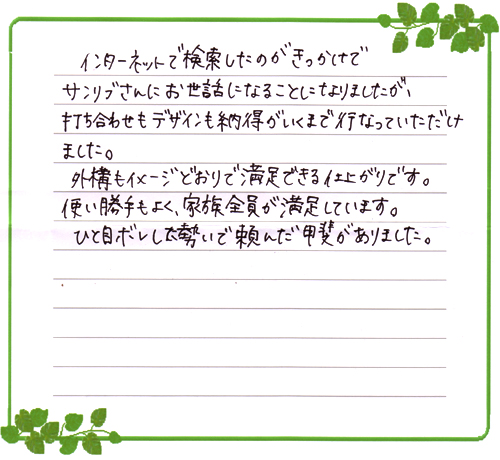 インターネットで検索したのがきっかけで
サンリブさんにお世話になることになりましたが、
打ち合わせもデザインも納得がいくまで行なっていただけ
ました。
外構もイメージどおりで満足できる仕上がりです。
使い勝手もよく、家族全員が満足しています。
ひと目ボレした勢いで頼んだ甲斐がありました。